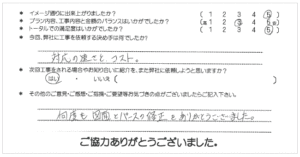 * イメージ通りに出来上がりましたか? ( 1 2 3 4 5 )
* プラン内容、工事内容と金額のバランスはいかがでしたか? ( 1 2 3 4 5 )
* トータルでの満足度はいかがでしたか? ( 1 2 3 4 5 )
* 今回、弊社に工事を依頼する決め手は何でしたか?
対応の速さと、コスト。
* 次回工事をされる場合やお知り合いに紹介を、また弊社に依頼しようと思いますか?
( はい ・ いいえ )
* その他のご意見・ご感想・ご指摘・ご要望等お気づきの点がございましたらご記入下さい。
何度も図面とパースの修正とありがとうございました。
ご協力ありがとうございました。